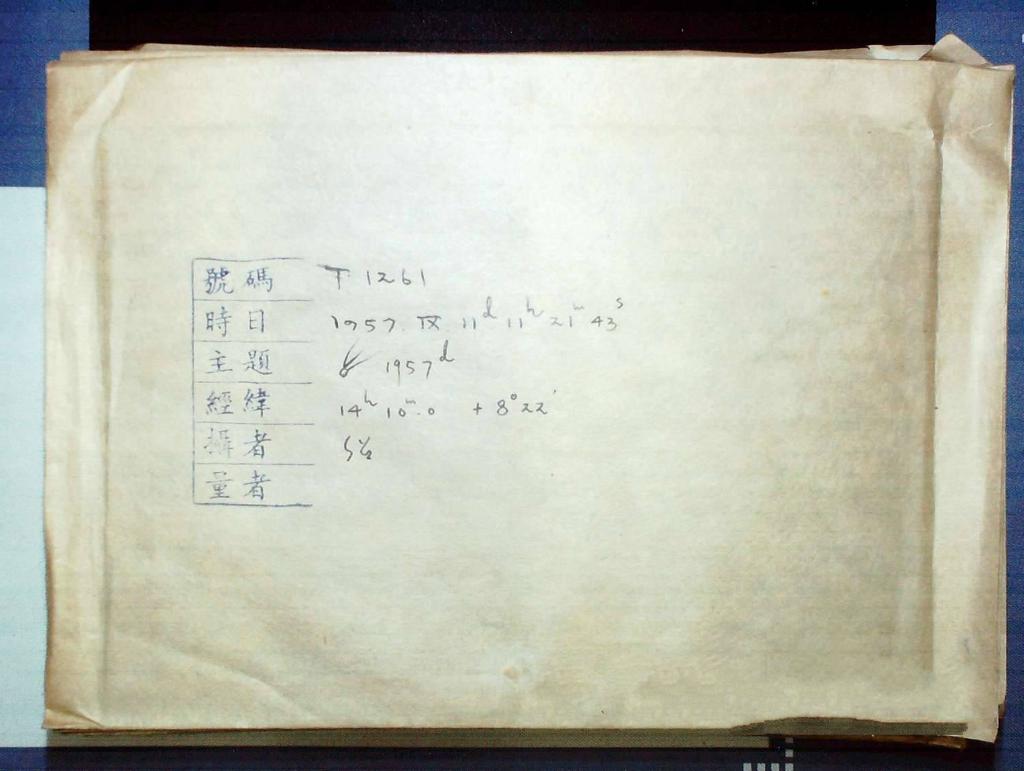 號碼 T 1261
時日 1957 IX 11ᵈ 11ʰ 21ᵐ 43ˢ
主題 ☄ 1957d
經緯 14ʰ 10ᵐ.0 +8°22′
攝者
量者